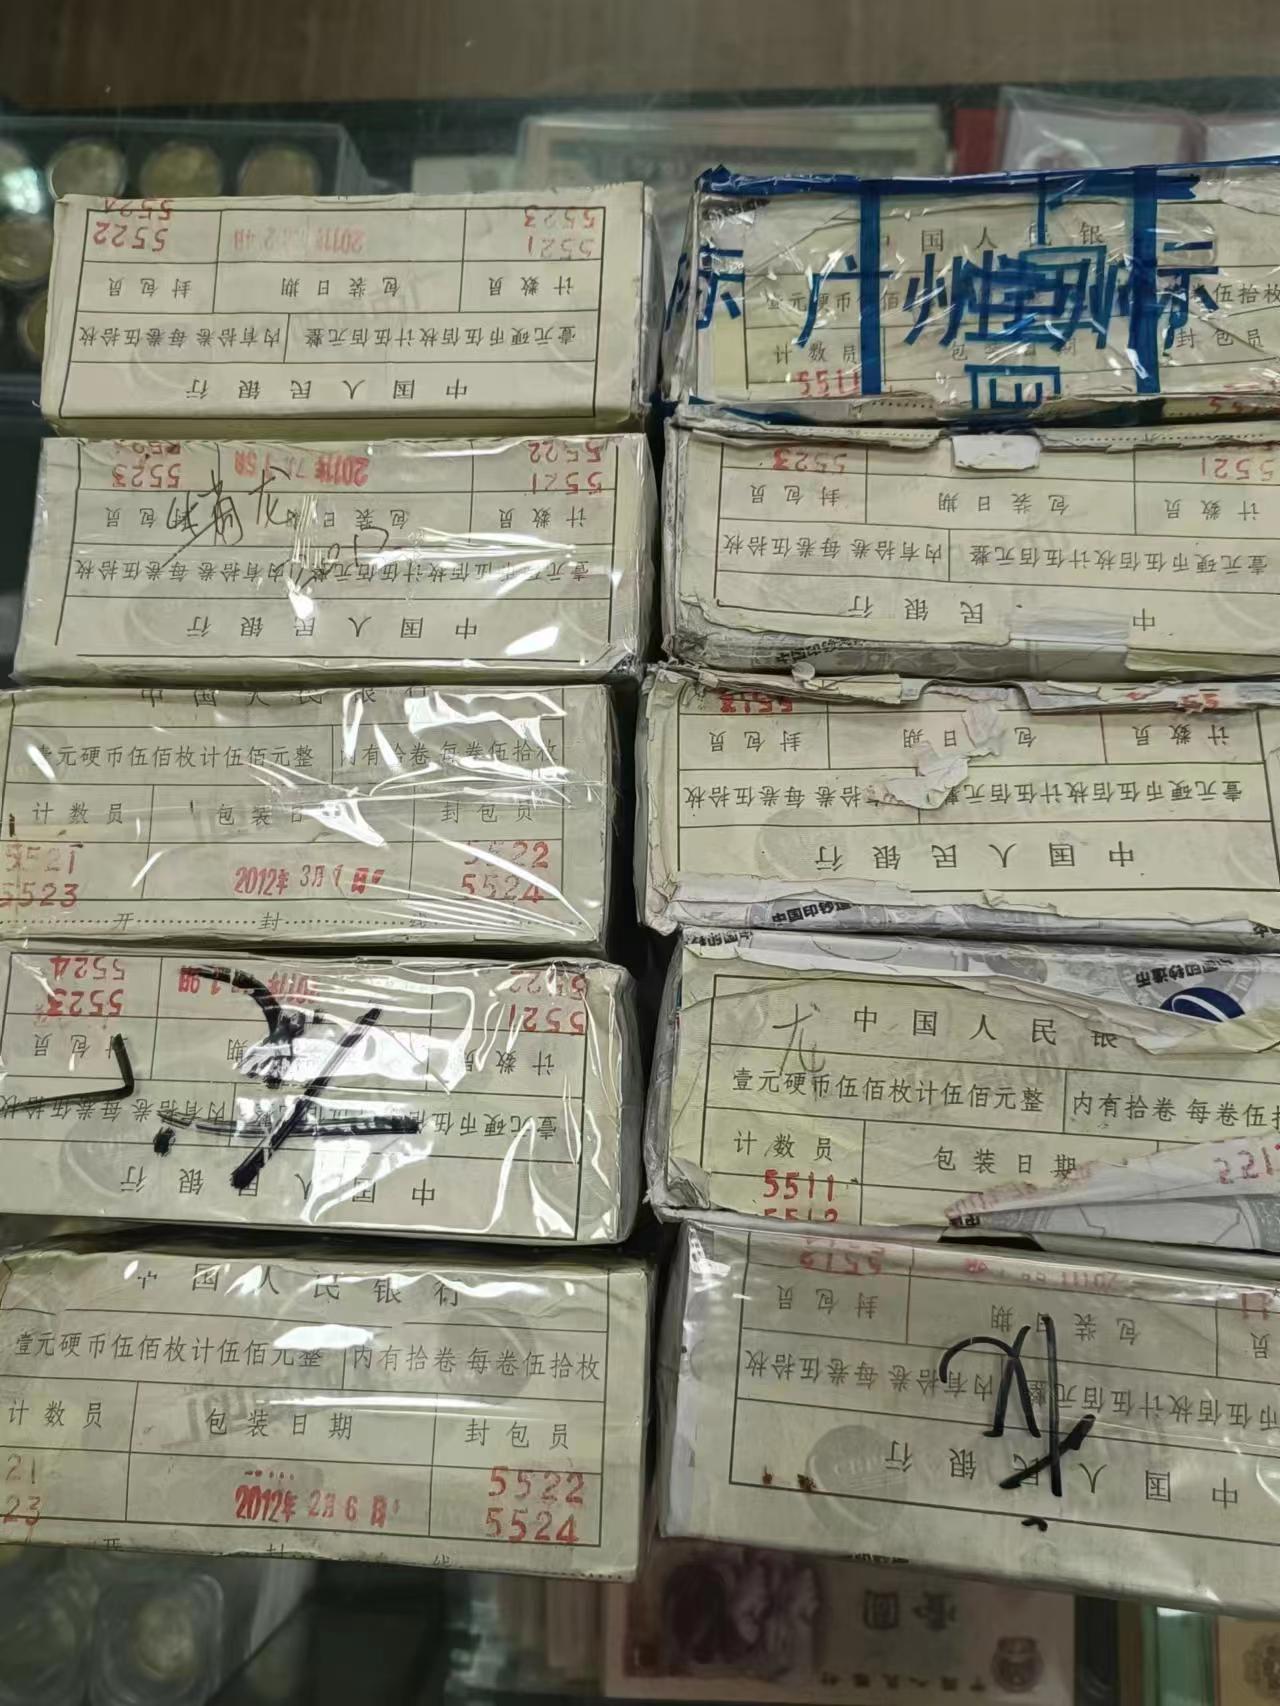 5524
5523
5522
2011年
5521
封包员
包装日期
计数员
壹元硬币伍佰枚计伍佰元整 内有拾卷 每卷伍拾枚
中国人民银行
中国人民银
广州
壹元硬币伍佰
伍拾枚
计数员
封包员
5511
5522
5523
2011年
5521
封包员
包装日期
计数员
壹元硬币伍佰枚计伍佰元整 内有拾卷 每卷伍拾枚
中国人民银行
龙
5523
5521
封包员
包装日期
计数员
壹元硬币伍佰枚计伍佰元整 内有拾卷 每卷伍拾枚
中
民银行
中国人民银行
壹元硬币伍佰枚计伍佰元整 内有拾卷 每卷伍拾枚
计数员
包装日
封包员
5521
5522
5523
2012年3月1日
5524
开 封 线
5513
封包员
包
日期
计数员
壹元硬币伍佰枚计伍佰元整
拾卷 每卷伍拾枚
中国人民银行
中国印钞造
5524
5522
5523
5521
封包员
期
计数员
壹元硬币伍
内有拾卷 每卷伍拾枚
中国人民银行
中国印钞造币
龙
中国人民银
壹元硬币伍佰枚计伍佰元整 内有拾卷 每卷伍拾
计数员
包装日期
5511
5512
中国人民银行
壹元硬币伍佰枚计伍佰元整 内有拾卷 每卷伍拾枚
计数员
包装日期
封包员
21
5522
23
2012年2月6日
5524
开 封 线
5512
2011
封包员
包装日期
员
币伍佰枚计伍佰元整 内有拾卷 每卷伍拾枚
中国人民银行
龙
壹圆
中国人民银行